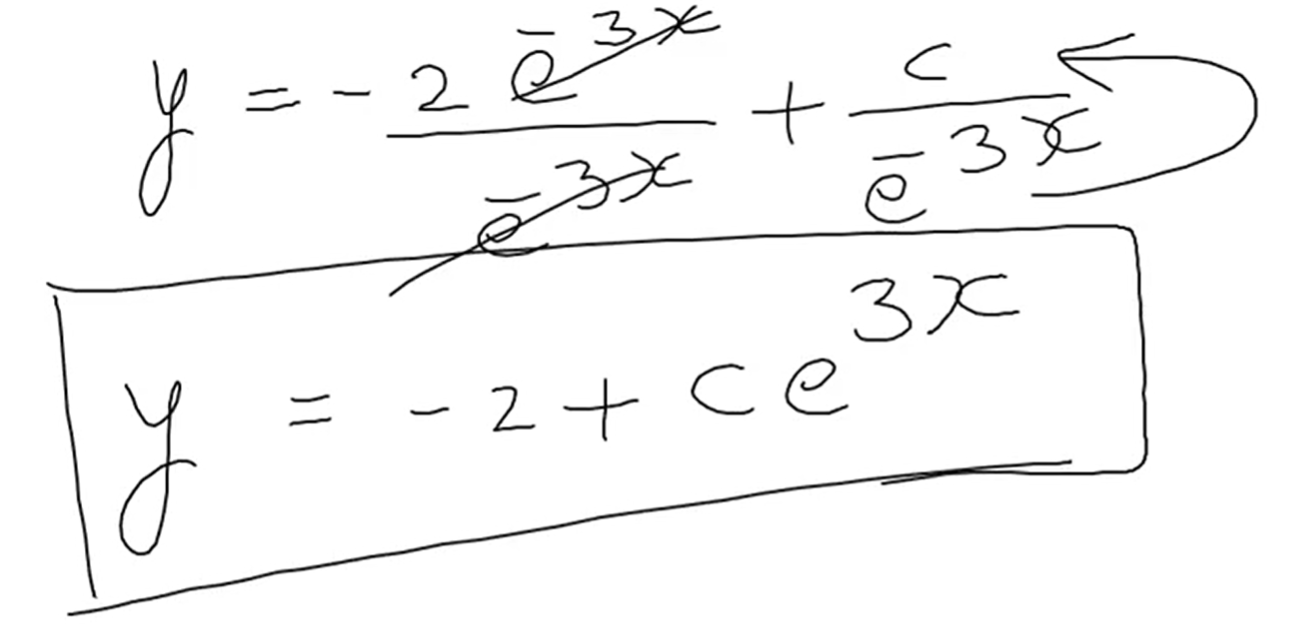 y = - 2 e^{-3x} / e^{-3x} + c / e^{-3x}
y = - 2 + c e^{3x}